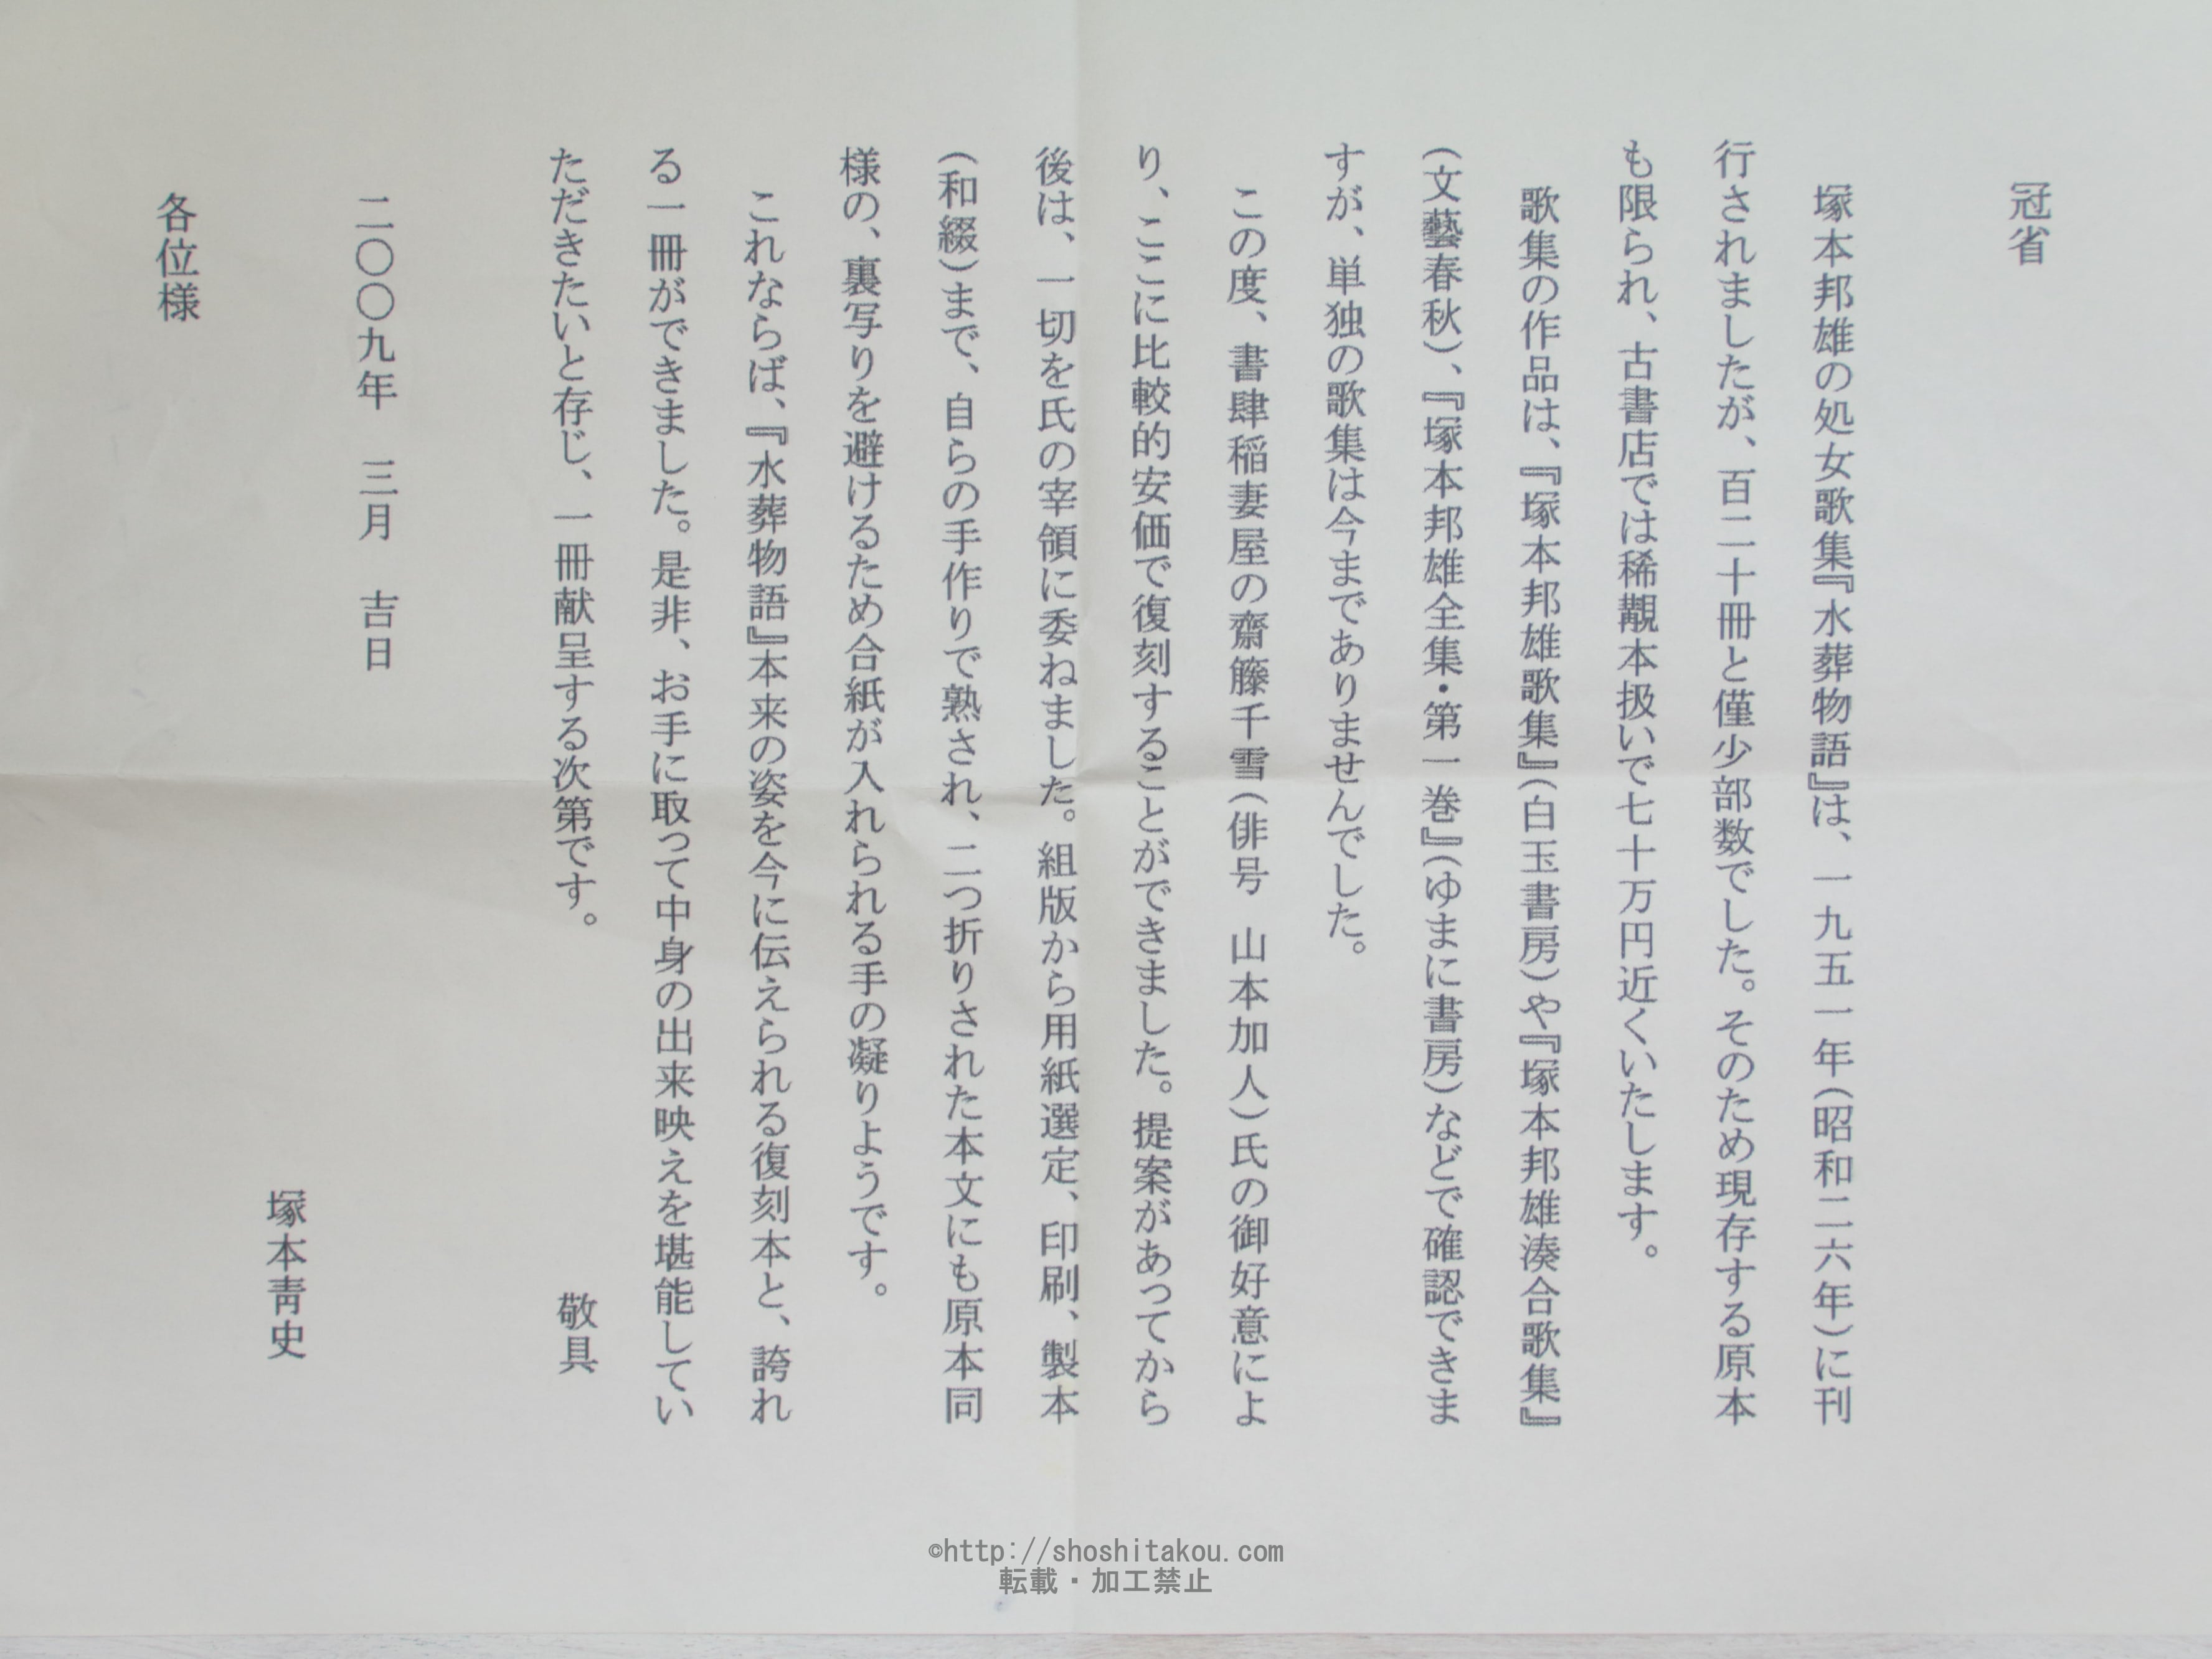 冠省
塚本邦雄の処女歌集『水葬物語』は、一九五一年（昭和二六年）に刊
行されましたが、百二十冊と僅少部数でした。そのため現存する原本
も限られ、古書店では稀覯本扱いで七十万円近くいたします。
歌集の作品は、『塚本邦雄歌集』（白玉書房）や『塚本邦雄湊合歌集』
（文藝春秋）、『塚本邦雄全集・第一巻』（ゆまに書房）などで確認できま
すが、単独の歌集は今までありませんでした。
この度、書肆稲妻屋の齋籐千雪（俳号　山本加人）氏の御好意によ
り、ここに比較的安価で復刻することができました。提案があってから
後は、一切を氏の宰領に委ねました。組版から用紙選定、印刷、製本
（和綴）まで、自らの手作りで熟され、二つ折りされた本文にも原本同
様の、裏写りを避けるため合紙が入れられる手の凝りようです。
これならば、『水葬物語』本来の姿を今に伝えられる復刻本と、誇れ
る一冊ができました。是非、お手に取って中身の出来映えを堪能してい
ただきたいと存じ、一冊献呈する次第です。
敬具
二〇〇九年　三月　吉日
塚本靑史
各位様
©http://shoshitakou.com
転載・加工禁止